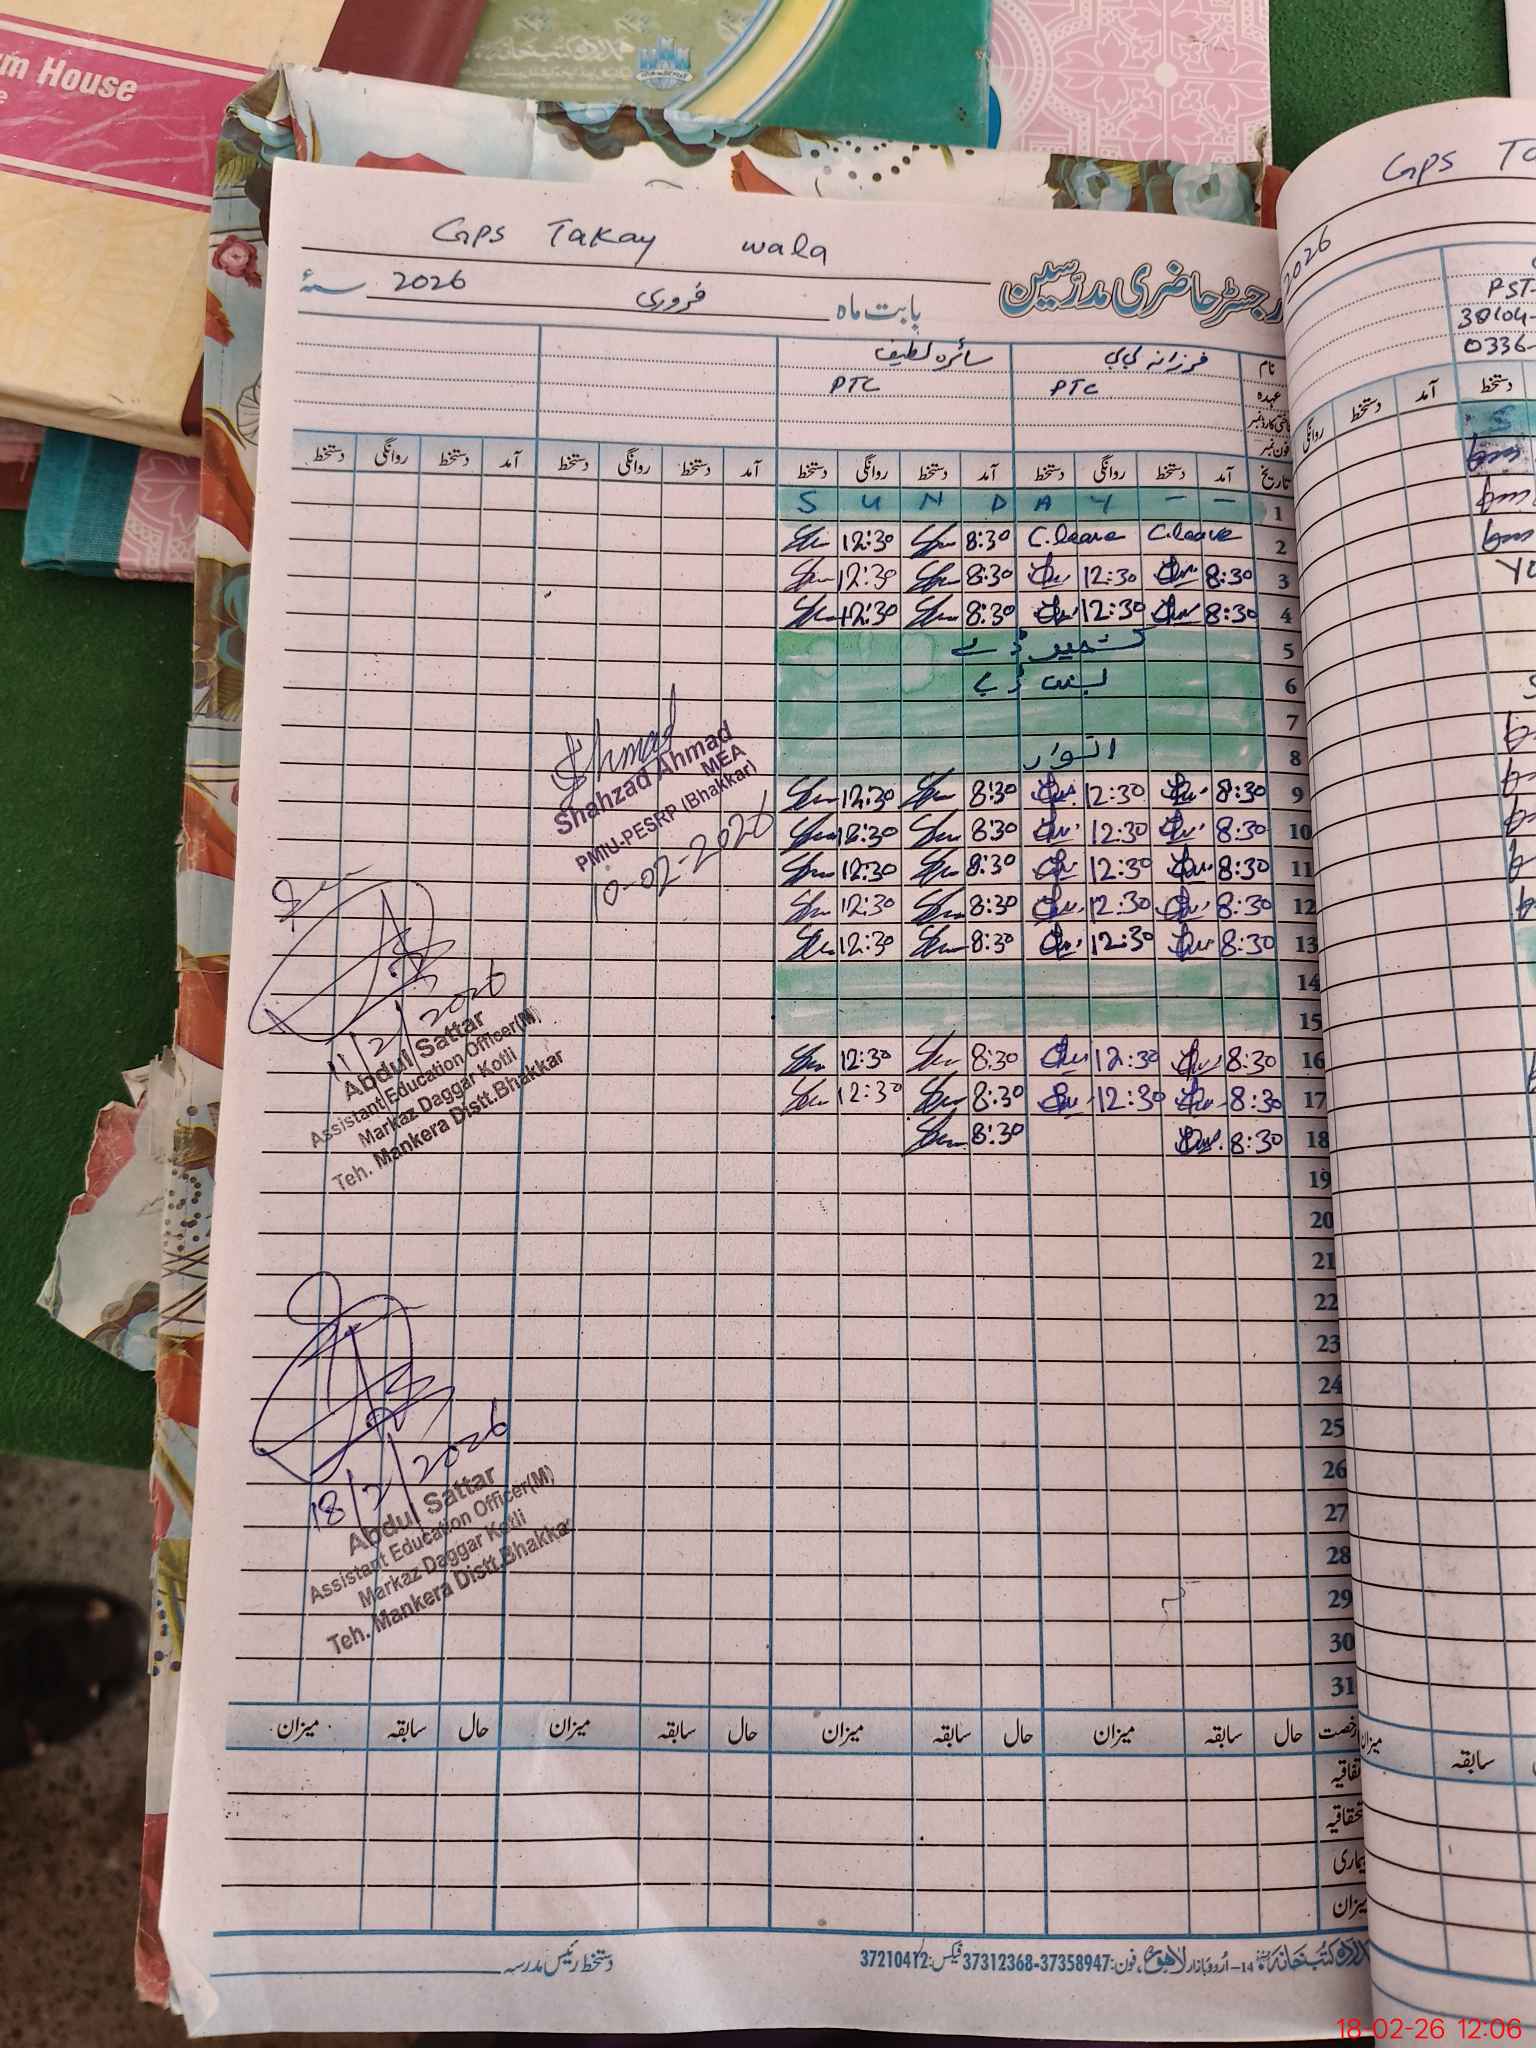 um House
Gps Takay wala
رجسٹر حاضری مدرسین
بابت ماہ فروری 2026 سنۂ
نام فرزانہ بی بی سائرہ لطیف
عہدہ PTC PTC
شناختی کارڈ نمبر
فون نمبر
تاریخ آمد دستخط روانگی دستخط آمد دستخط روانگی دستخط آمد دستخط روانگی دستخط آمد دستخط روانگی دستخط
1 S U N D A Y - -
2 C.leave C.leave 8:30 12:30
3 8:30 12:30 8:30 12:30
4 8:30 12:30 8:30 12:30
5 کشمیر ڈے
6 بسنت ڈے
7
8 اتوار
9 8:30 12:30 8:30 12:30
10 8:30 12:30 8:30 12:30
11 8:30 12:30 8:30 12:30
12 8:30 12:30 8:30 12:30
13 8:30 12:30 8:30 12:30
14
15
16 8:30 12:30 8:30 12:30
17 8:30 12:30 8:30 12:30
18 8:30 8:30
19
20
21
22
23
24
25
26
27
28
29
30
31
Shahzad Ahmad
MEA
PMIU-PESRP (Bhakkar)
10-02-2026
11/2/2026
Abdul Sattar
Assistant Education Officer(M)
Markaz Daggar Kotli
Teh. Mankera Distt.Bhakkar
18/2/2026
Abdul Sattar
Assistant Education Officer(M)
Markaz Daggar Kotli
Teh. Mankera Distt.Bhakkar
رخصت حال سابقہ میزان حال سابقہ میزان حال سابقہ میزان حال سابقہ میزان
اتفاقیہ
استحقاقیہ
بیماری
میزان
دستخط رئیس مدرسہ
کتب خانہ 14-اردو بازار لاہور، فون: 37358947-37312368 فیکس: 37210412
Gps
2026
PST-
38104-
0336-
آمد دستخط روانگی
دستخط
S
میزان سابقہ
18-02-26 12:06